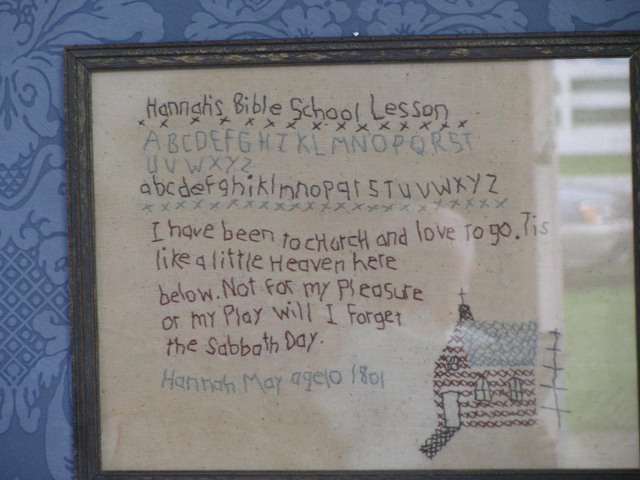 Hannah's Bible School Lesson
ABCDEFGHIKLMNOPQRST
UVWXYZ
abcdefghiklmnopqrsTuvwxyz
I have been to cHurcH and love to go. Tis
like a little Heaven here
below. Not for my Pleasure
or my Play will I Forget
the Sabbath Day.
Hannah May age 10 1801